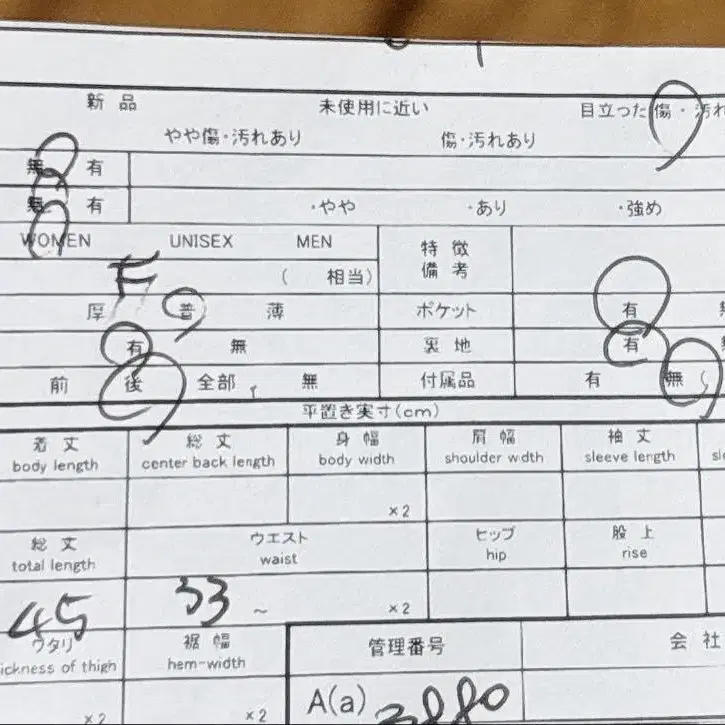 新品 未使用に近い 目立った傷・汚れ
やや傷・汚れあり 傷・汚れあり
無 有
無 有 ・やや ・あり ・強め
WOMEN UNISEX MEN 特徴
備考
F ( 相当)
厚 普 薄 ポケット 有
有 無 裏地 有
前 後 全部 無 付属品 有 無 (
平置き実寸(cm)
着丈 総丈 身幅 肩幅 袖丈
body length center back length body width shoulder width sleeve length
×2
総丈 ウエスト ヒップ 股上
total length waist hip rise
45 33 ~ ×2
ワタリ 裾幅 管理番号 会社
ickness of thigh hem-width
×2 ×2 A(a) 3880